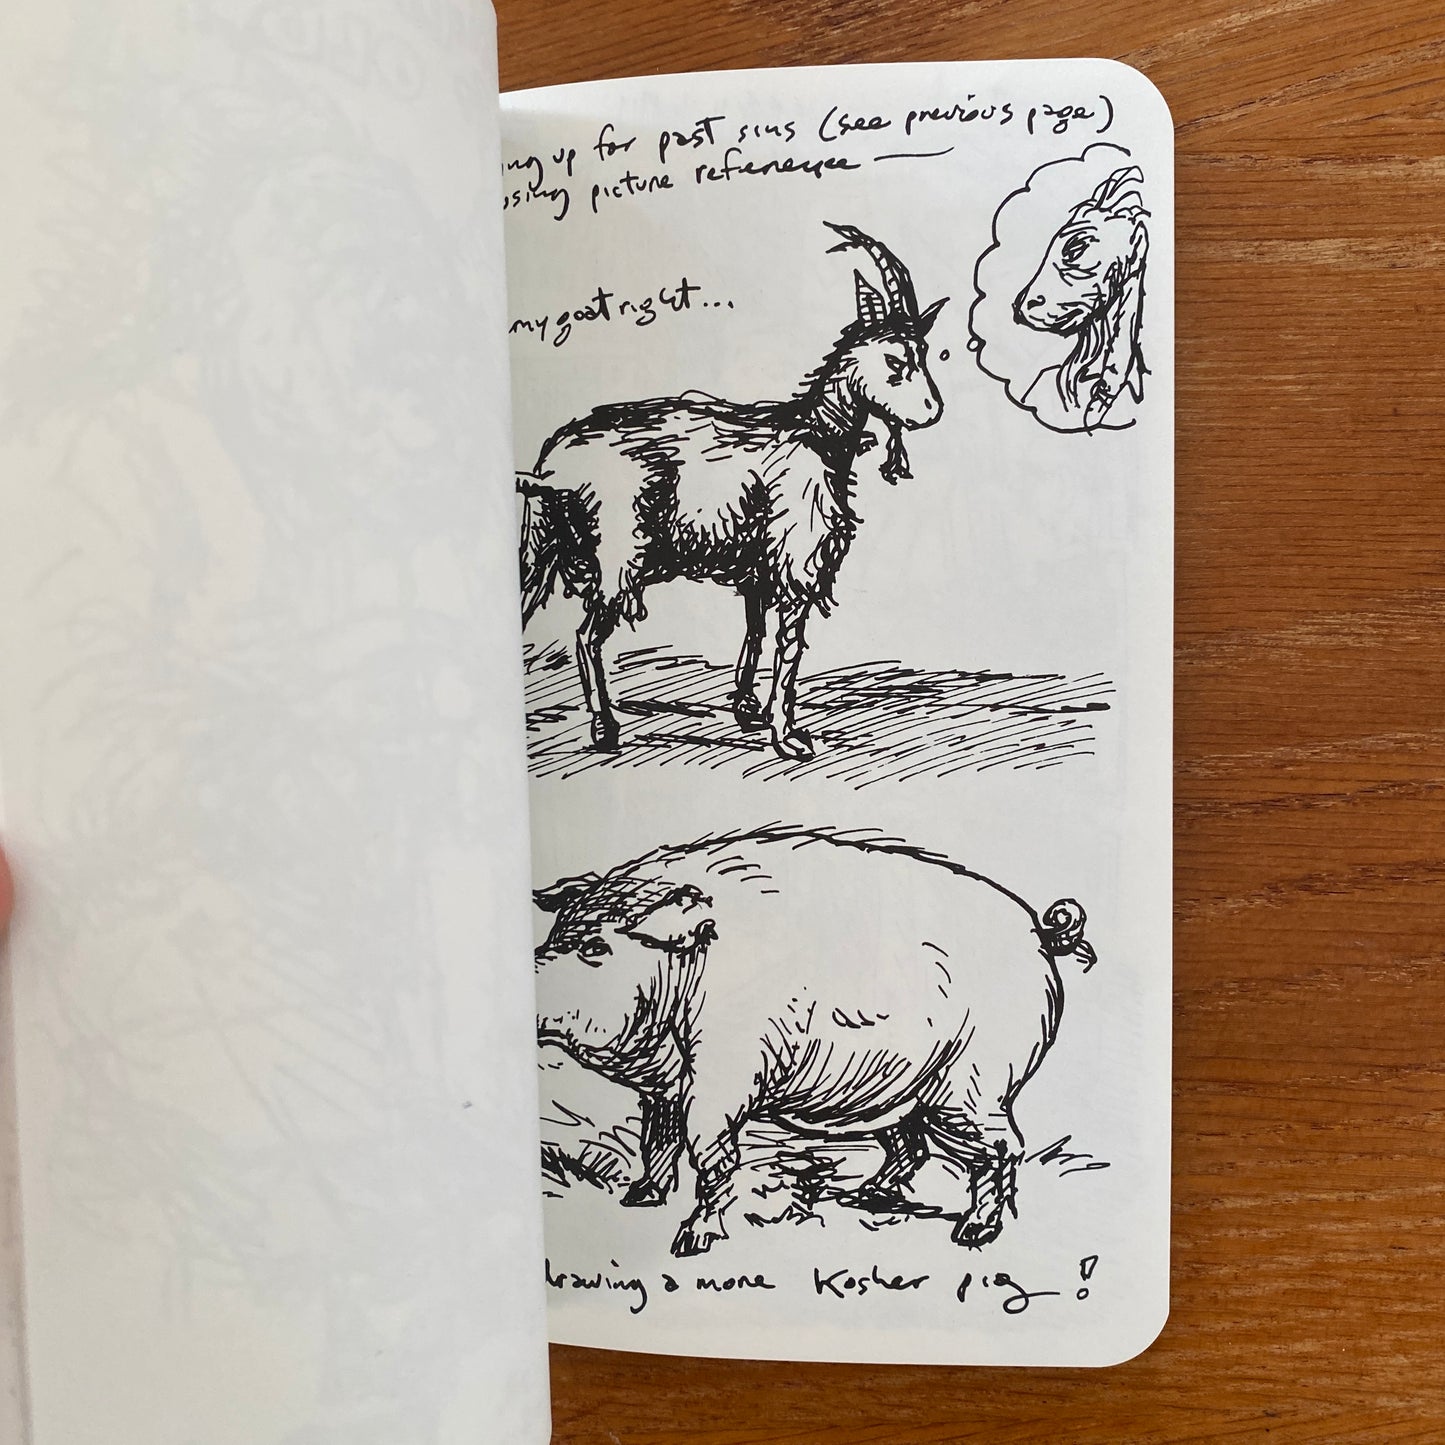 up for past sins (see previous page)
using picture reference —
my goat right...
drawing a more Kosher pig!